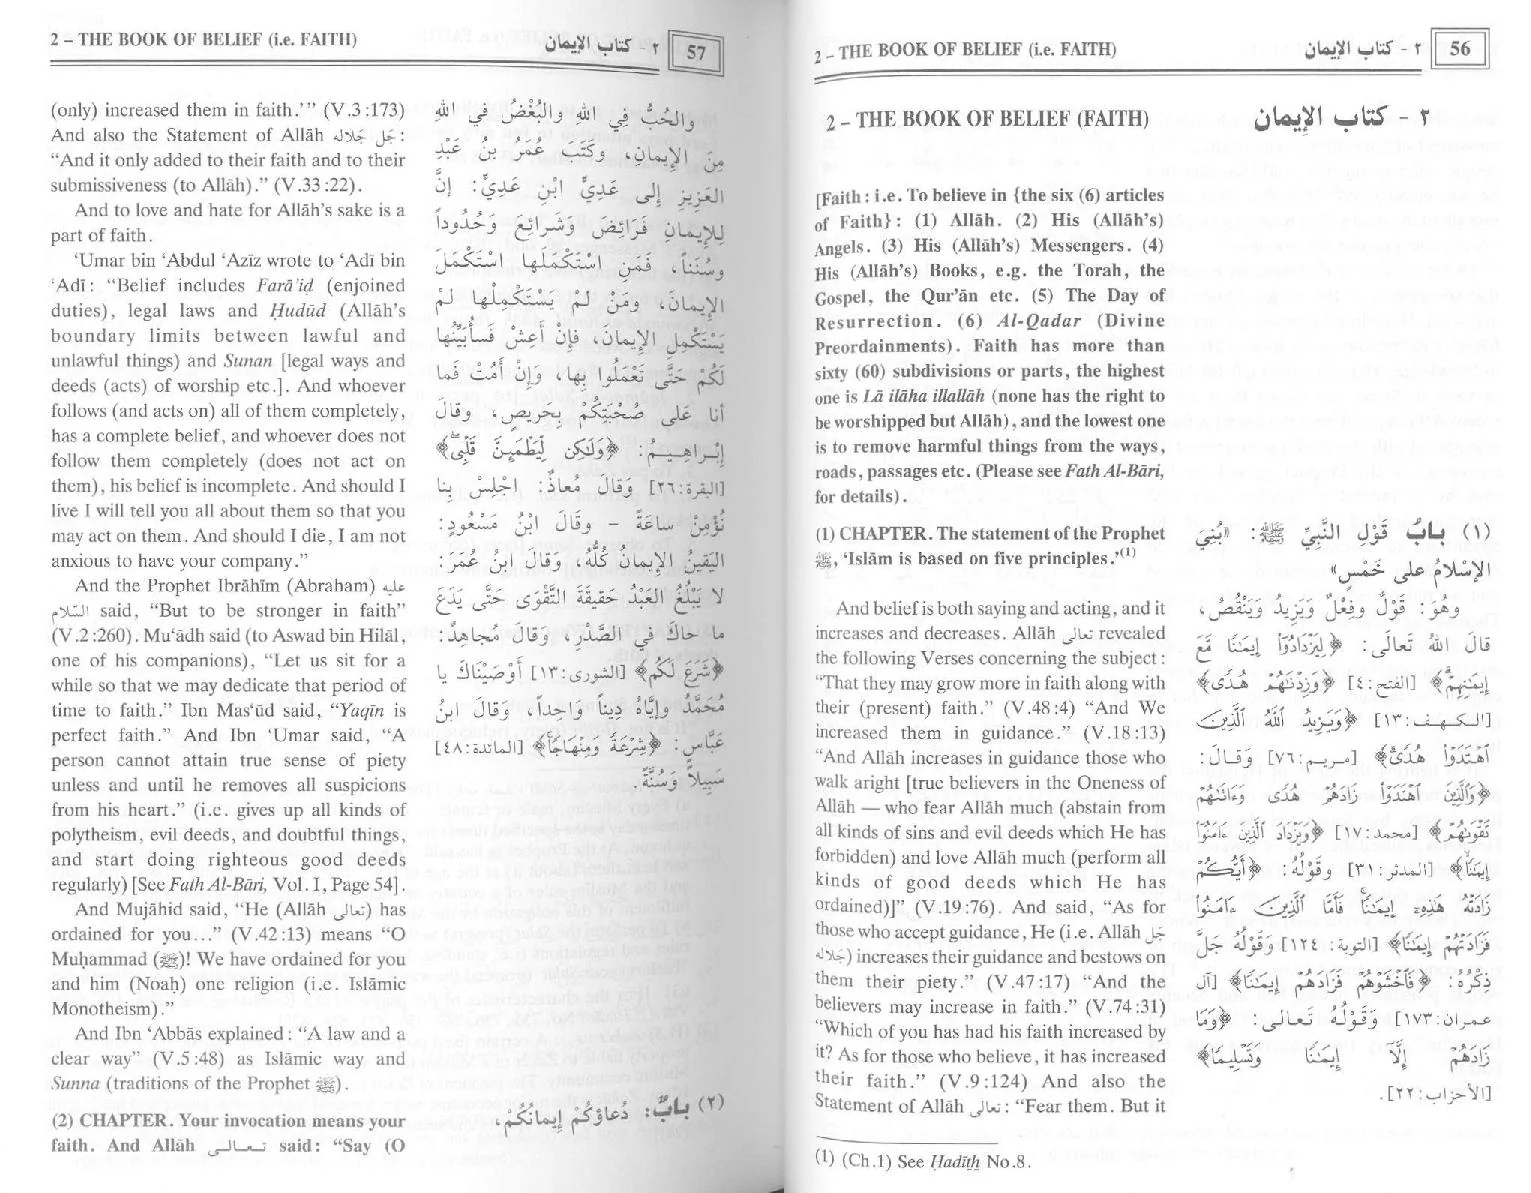 2 – THE BOOK OF BELIEF (i.e. FAITH)
٢ - كتاب الإيمان
56
2 – THE BOOK OF BELIEF (FAITH)
٢ - كتاب الإيمان
[Faith: i.e. To believe in {the six (6) articles
of Faith}: (1) Allāh. (2) His (Allāh's)
Angels. (3) His (Allāh's) Messengers. (4)
His (Allāh's) Books, e.g. the Torah, the
Gospel, the Qur'ān etc. (5) The Day of
Resurrection. (6) Al-Qadar (Divine
Preordainments). Faith has more than
sixty (60) subdivisions or parts, the highest
one is Lā ilāha illallāh (none has the right to
be worshipped but Allāh), and the lowest one
is to remove harmful things from the ways,
roads, passages etc. (Please see Fath Al-Bāri,
for details).
(1) CHAPTER. The statement of the Prophet
ﷺ, 'Islām is based on five principles.'(1)
And belief is both saying and acting, and it
increases and decreases. Allāh تعالى revealed
the following Verses concerning the subject:
"That they may grow more in faith along with
their (present) faith." (V.48:4) "And We
increased them in guidance." (V.18:13)
"And Allāh increases in guidance those who
walk aright [true believers in the Oneness of
Allāh — who fear Allāh much (abstain from
all kinds of sins and evil deeds which He has
forbidden) and love Allāh much (perform all
kinds of good deeds which He has
ordained)]" (V.19:76). And said, "As for
those who accept guidance, He (i.e. Allāh جل
جلاله) increases their guidance and bestows on
them their piety." (V.47:17) "And the
believers may increase in faith." (V.74:31)
"Which of you has had his faith increased by
it? As for those who believe, it has increased
their faith." (V.9:124) And also the
Statement of Allāh تعالى: "Fear them. But it
(١) بابُ قَوْلِ النَّبِيِّ ﷺ: «بُنِيَ
الإسْلَامُ علَى خَمْسٍ»
وهُوَ: قَوْلٌ وَفِعْلٌ وَيَزِيدُ وَيَنْقُصُ،
قالَ اللهُ تَعالى: ﴿لِيَزْدَادُوٓا۟ إِيمَـٰنًا مَّعَ
إِيمَـٰنِهِمْ﴾ [الفتح: ٤] ﴿وَزِدْنَـٰهُمْ هُدًى﴾
[الكهف: ١٣] ﴿وَيَزِيدُ ٱللَّهُ ٱلَّذِينَ
ٱهْتَدَوْا۟ هُدًى﴾ [مريم: ٧٦] وَقالَ:
﴿وَٱلَّذِينَ ٱهْتَدَوْا۟ زَادَهُمْ هُدًى وَءَاتَىٰهُمْ
تَقْوَىٰهُمْ﴾ [محمد: ١٧] ﴿وَيَزْدَادَ ٱلَّذِينَ ءَامَنُوٓا۟
إِيمَـٰنًا﴾ [المدثر: ٣١] وَقَوْلُهُ: ﴿أَيُّكُمْ
زَادَتْهُ هَـٰذِهِۦٓ إِيمَـٰنًا فَأَمَّا ٱلَّذِينَ ءَامَنُوا۟
فَزَادَتْهُمْ إِيمَـٰنًا﴾ [التوبة: ١٢٤] وَقَوْلُهُ جَلَّ
ذِكْرُهُ: ﴿فَٱخْشَوْهُمْ فَزَادَهُمْ إِيمَـٰنًا﴾ [آل
عمران: ١٧٣] وَقَوْلُهُ تَعالى: ﴿وَمَا
زَادَهُمْ إِلَّآ إِيمَـٰنًا وَتَسْلِيمًا﴾
[الأحزاب: ٢٢].
(1) (Ch.1) See Ḥadīth No.8.
2 – THE BOOK OF BELIEF (i.e. FAITH)
٢ - كتاب الإيمان
57
(only) increased them in faith.'" (V.3:173)
And also the Statement of Allāh جل جلاله:
"And it only added to their faith and to their
submissiveness (to Allāh)." (V.33:22).
And to love and hate for Allāh's sake is a
part of faith.
'Umar bin 'Abdul 'Azīz wrote to 'Adī bin
'Adī: "Belief includes Farā'iḍ (enjoined
duties), legal laws and Ḥudūd (Allāh's
boundary limits between lawful and
unlawful things) and Sunan [legal ways and
deeds (acts) of worship etc.]. And whoever
follows (and acts on) all of them completely,
has a complete belief, and whoever does not
follow them completely (does not act on
them), his belief is incomplete. And should I
live I will tell you all about them so that you
may act on them. And should I die, I am not
anxious to have your company."
And the Prophet Ibrāhīm (Abraham) عليه
السلام said, "But to be stronger in faith"
(V.2:260). Mu'ādh said (to Aswad bin Hilāl,
one of his companions), "Let us sit for a
while so that we may dedicate that period of
time to faith." Ibn Mas'ūd said, "Yaqīn is
perfect faith." And Ibn 'Umar said, "A
person cannot attain true sense of piety
unless and until he removes all suspicions
from his heart." (i.e. gives up all kinds of
polytheism, evil deeds, and doubtful things,
and start doing righteous good deeds
regularly) [See Fath Al-Bāri, Vol. I, Page 54].
And Mujāhid said, "He (Allāh تعالى) has
ordained for you..." (V.42:13) means "O
Muḥammad (ﷺ)! We have ordained for you
and him (Noaḥ) one religion (i.e. Islāmic
Monotheism)."
And Ibn 'Abbās explained: "A law and a
clear way" (V.5:48) as Islāmic way and
Sunna (traditions of the Prophet ﷺ).
(2) CHAPTER. Your invocation means your
faith. And Allāh تعالى said: "Say (O
والحُبُّ فِي اللهِ وَالبُغْضُ فِي اللهِ
مِنَ الإِيمانِ، وَكَتَبَ عُمَرُ بنُ عَبْدِ
العَزِيزِ إلى عَدِيِّ ابْنِ عَدِيٍّ: إنَّ
للإِيمَانِ فَرَائِضَ وَشَرَائِعَ وَحُدُوداً
وَسُنَناً، فَمَنِ اسْتَكْمَلَهَا اسْتَكْمَلَ
الإِيمَانَ، ومَنْ لَمْ يَسْتَكْمِلْهَا لَمْ
يَسْتَكْمِلِ الإِيمَانَ، فَإِنْ أَعِشْ فَسَأُبَيِّنُهَا
لَكُمْ حَتَّى تَعْمَلُوا بِهَا، وَإِنْ أَمُتْ فَمَا
أَنا عَلَى صُحْبَتِكُمْ بِحَرِيصٍ، وَقَالَ
إِبْرَاهِيمُ: ﴿وَلَـٰكِن لِّيَطْمَئِنَّ قَلْبِى﴾
[البقرة: ٢٦٠] وَقَالَ مُعَاذٌ: اجْلِسْ بِنَا
نُؤْمِنْ سَاعَةً – وَقَالَ ابْنُ مَسْعُودٍ:
اليَقِينُ الإِيمَانُ كُلُّهُ، وَقَالَ ابْنُ عُمَرَ:
لا يَبْلُغُ العَبْدُ حَقِيقَةَ التَّقْوَى حَتَّى يَدَعَ
ما حَاكَ فِي الصَّدْرِ، وَقَالَ مُجَاهِدٌ:
﴿شَرَعَ لَكُم﴾ [الشورى: ١٣] أَوْصَيْنَاكَ يا
مُحَمَّدُ وإيَّاهُ دِيناً وَاحِداً، وَقَالَ ابنُ
عَبَّاسٍ: ﴿شِرْعَةً وَمِنْهَاجًا﴾ [المائدة: ٤٨]
سَبِيلاً وَسُنَّةً
(٢) بابٌ: دُعَاؤُكُمْ إِيمَانُكُمْ،